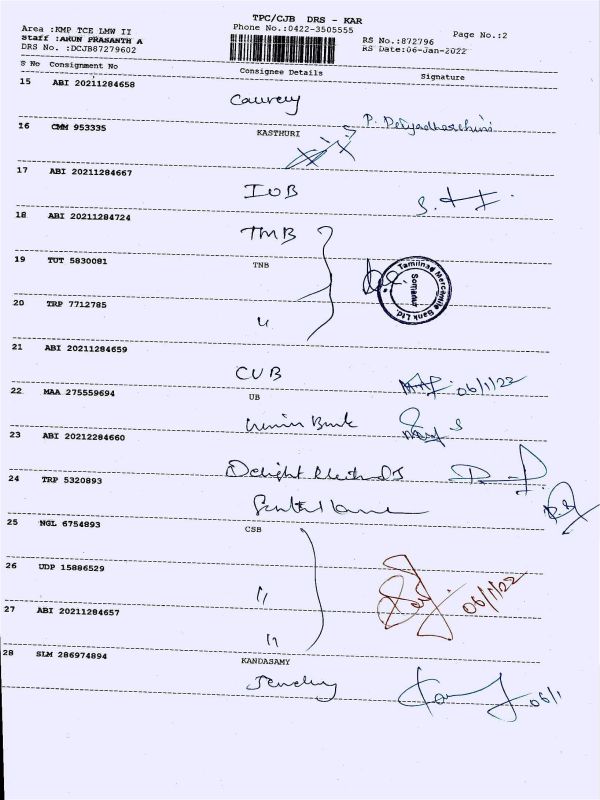 TPC/CJB DRS - KAR
Area :KMP TCE LMW II
Phone No.:0422-3505555
Page No.:2
Staff :ARUN PRASANTH A
RS No.:872796
DRS No. :DCJB87279602
RS Date:06-Jan-2022
S No Consignment No Consignee Details Signature
15 ABI 20211284658
Cauvery
16 CMM 953335 KASTHURI P.
17 ABI 20211284667
IOB
18 ABI 20211284724
TMB
19 TUT 5830081 TNB
Tamilnad Mercantile Bank Ltd.
Somanur
20 TRP 7712785
"
21 ABI 20211284659
CUB 06/1/22
22 MAA 275559694 UB
Union Bank
23 ABI 20212284660
Delight
24 TRP 5320893
25 NGL 6754893 CSB
26 UDP 15886529
"
06/1/22
27 ABI 20211284657
"
28 SLM 286974894 KANDASAMY
06/1